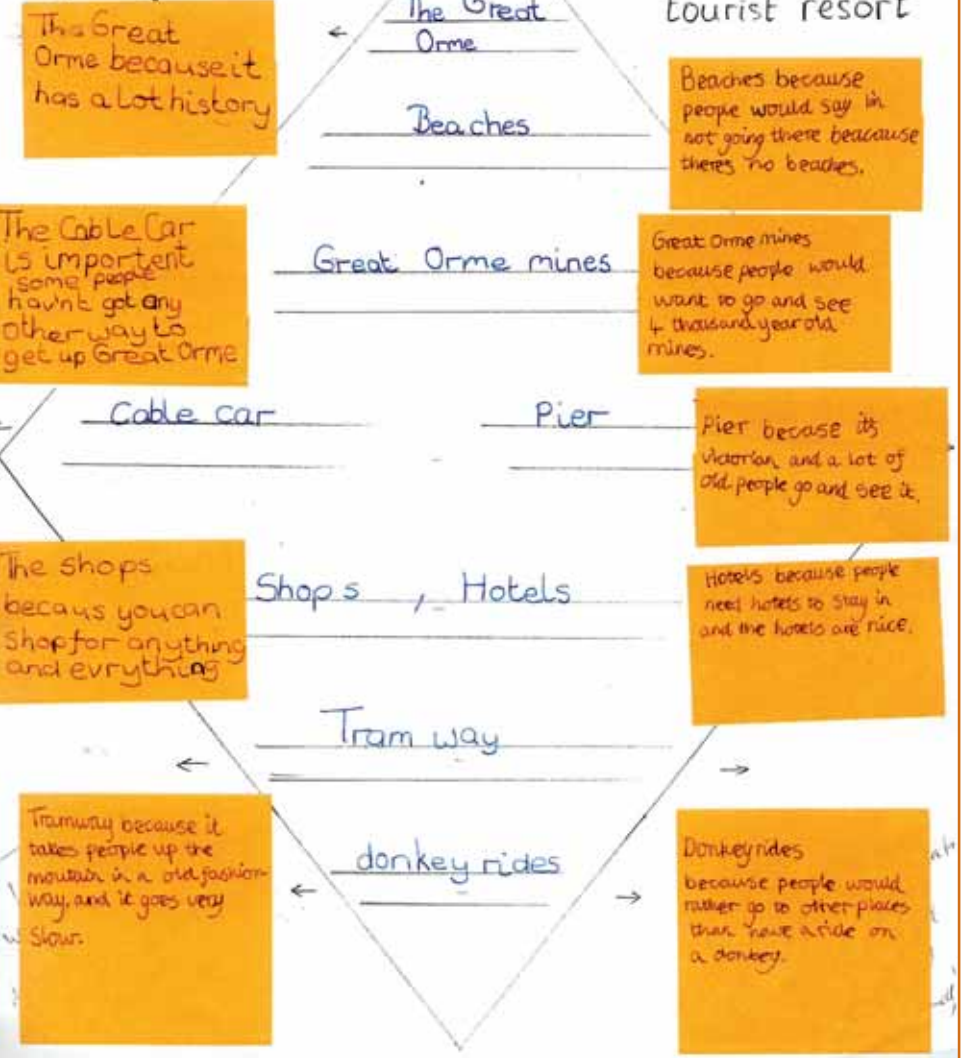 The Great
Orme
tourist resort
The Great
Orme because it
has a lot history
Beaches
Beaches because
people would say im
not going there beacause
theres no beaches.
The Cable Car
is importent
some people
hav'nt got any
other way to
get up Great Orme
Great Orme mines
Great Orme mines
because people would
want to go and see
4 thousand year old
mines.
Cable car
Pier
Pier becase its
victorian and a lot of
old people go and see it.
The shops
becaus you can
shop for anything
and evrything
Shops , Hotels
Hotels because people
need hotels to stay in
and the hotels are nice.
Tram way
Tramway because it
takes people up the
moutain in a old fashion
way, and it goes very
slow.
donkey rides
Donkey rides
because people would
rather go to other places
than have a ride on
a donkey.